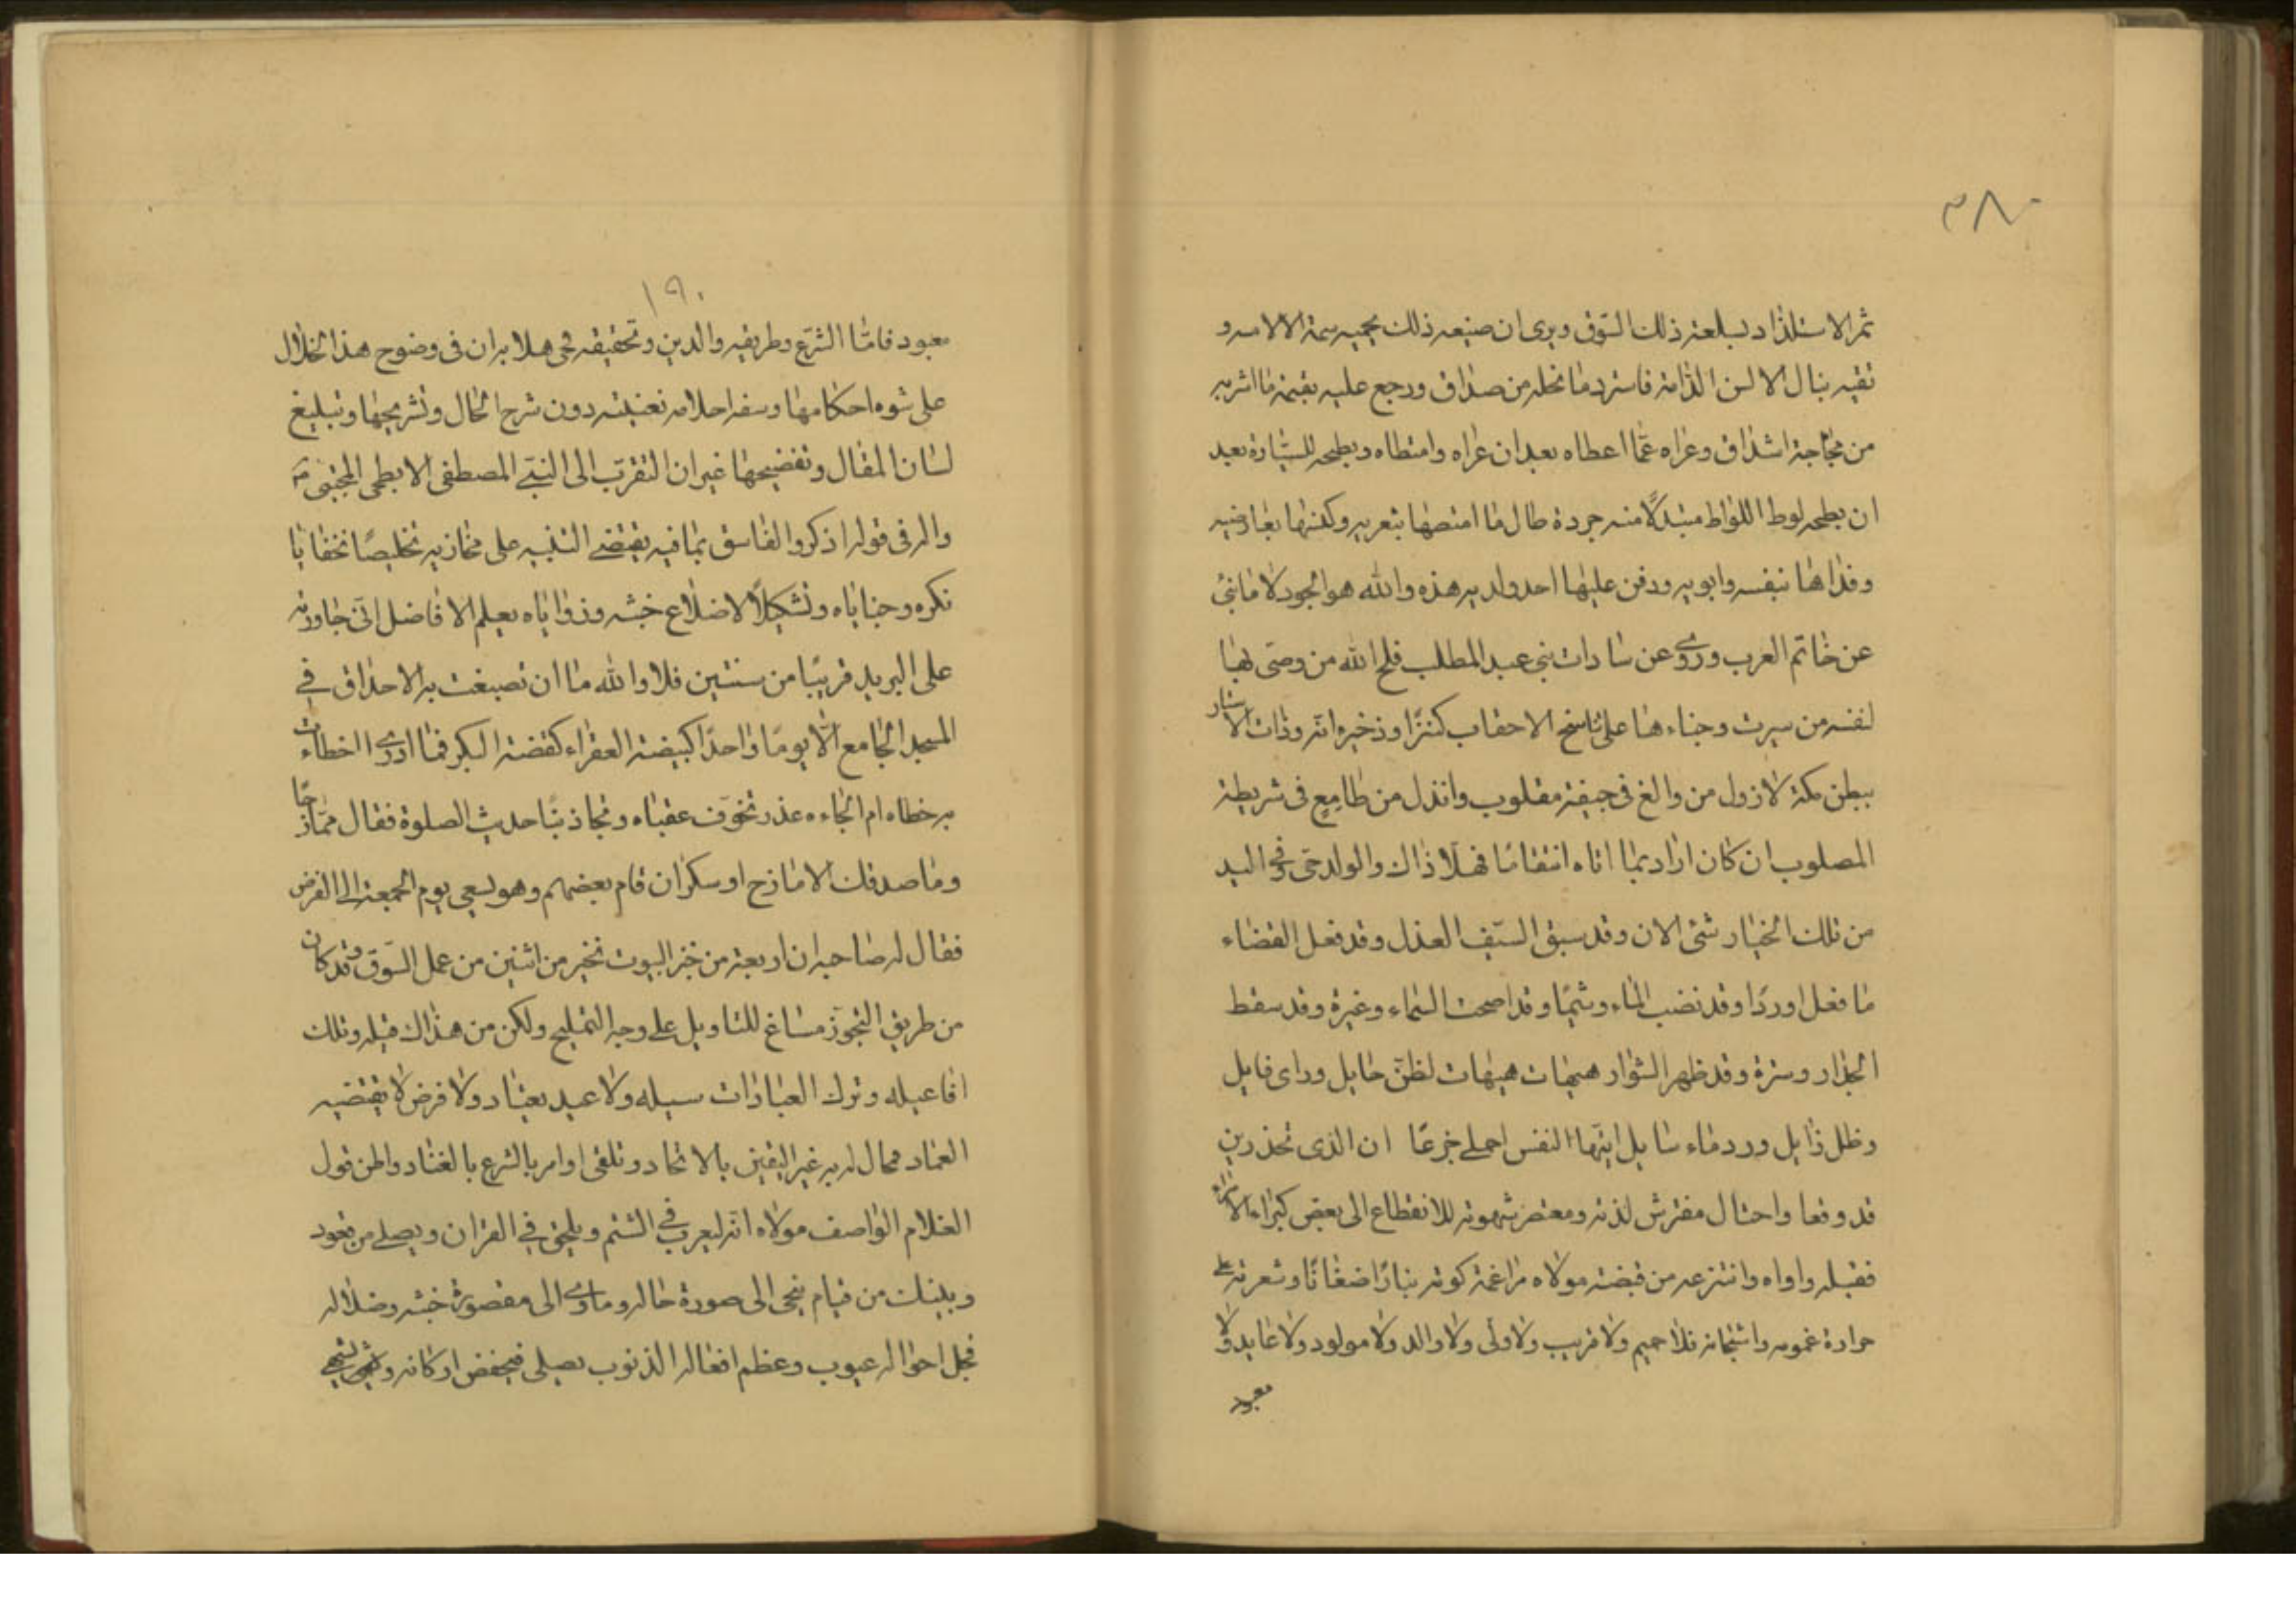 ٣٨٠
ثم الاستلذاد لسلعته ذلك السوق ويرى ان صنيعه ذلك يحميه سمة الالامه و
نقيه بنال الالسن الذامة فاسترد ما نحله من صداق ورجع عليه بقيمة ما اشربه
من مجاجة اشداق وعراه عما اعطاه بعد ان عراه وامتطاه وبطحه للشارة بعد
ان بطحه لوط اللواط مبتدلا منه جردة طال ما امتصها بتعريه وكنسها بعارضيه
وفداها بنفسه وابويه ودفن عليها احد ولديه هذه والله هو الجود لا ما نبئ
عن خاتم العرب وروى عن سادات بنى عبد المطلب فلح الله من وصى بها
لنفسه من سيرت وجناء ها على ناسخ الاحقاب كنزا وذخيرة انه وذات الاستار
ببطن مكة لازول من والغ فى جيفة مقلوب وانذل من طامع فى شريطة
المصلوب ان كان اراد بما اتاه انتقاما فهلا ذاك والولد حى فى اليد
من تلك الخيار شئ الان وقد سبق السيف العذل وقد فعل القضاء
ما فعل اوردا وقد نضب الماء وشيما وقد اصحت السماء وغيرة وقد سقط
الجدار وسترة وقد ظهر الشوار هيهات هيهات لظن حايل وراى فايل
وظل زايل وورد ماء سايل ايتها النفس اجملى جزعا ان الذى تحذرين
قد وقعا واحتال مفترش لذته ومعتصر شهوته للانقطاع الى بعض كبراء الاتراك
فقبله واواه وانتزعه من قبضة مولاه مراغمة كوته بنار اضغانا وشعرته على
حرادة غمومه واشجانه فلا حميم ولا قريب ولا ولى ولا والد ولا مولود ولا عابد ولا
معبود
١٩٠
معبود فاما الشرع وطريقه والدين وتحقيقه فحى هلا به ان فى وضوح هذا الخلال
على شوه احكامها وسفه احلامه تغنيته دون شرح الحال وتشريحها وتبليغ
لسان المقال وتفضيحها غير ان التقرب الى النبى المصطفى الابطحى المجتبى ص
واله فى قوله اذكروا الفاسق بما فيه يقتضى التنبيه على مخازيه تخليصا لخفايا
نكره وخباياه وتشكيلا لاضلاع خبثه وزواياه يعلم الافاضل انى جاورته
على البريد قريبا من سنتين فلا والله ما ان تصبغت به الاحداق فى
المسجد الجامع الا يوما واحدا كبيضة العقر اء كقضة البكر فما ادرى اخطات
به خطاه ام الجاءه عذر تخوف عقباه وتجاذبنا حديث الصلوة فقال ممازحا
وما صدقك الا مازح او سكران قام بعضهم وهو يسعى يوم الجمعة الى الفرض
فقال له صاحبه ان اربعة من خبز البيوت لخير من اثنين من عمل السوق وقد كان
من طريق التجوز مساغ للتاويل على وجه التمليح ولكن من هذاك قيله وتلك
افاعيله وترك العبادات سبيله ولا عيد يعتاد ولا فرض لا يقتضيه
العماد محال له به غير اليقين بالالحاد وتلقى اوامر بالشرع بالغناد والحن قول
الغلام الواصف مولاه انه ليعرب فى الشتم ويلحن فى القران ويصلى من قعود
وبينك من قيام ينحى الى صورة حاله وماوى الى مقصورة خبثه وضلاله
فجل احواله عيوب وعظم افعاله الذنوب يصلى فيخفض اركانه و